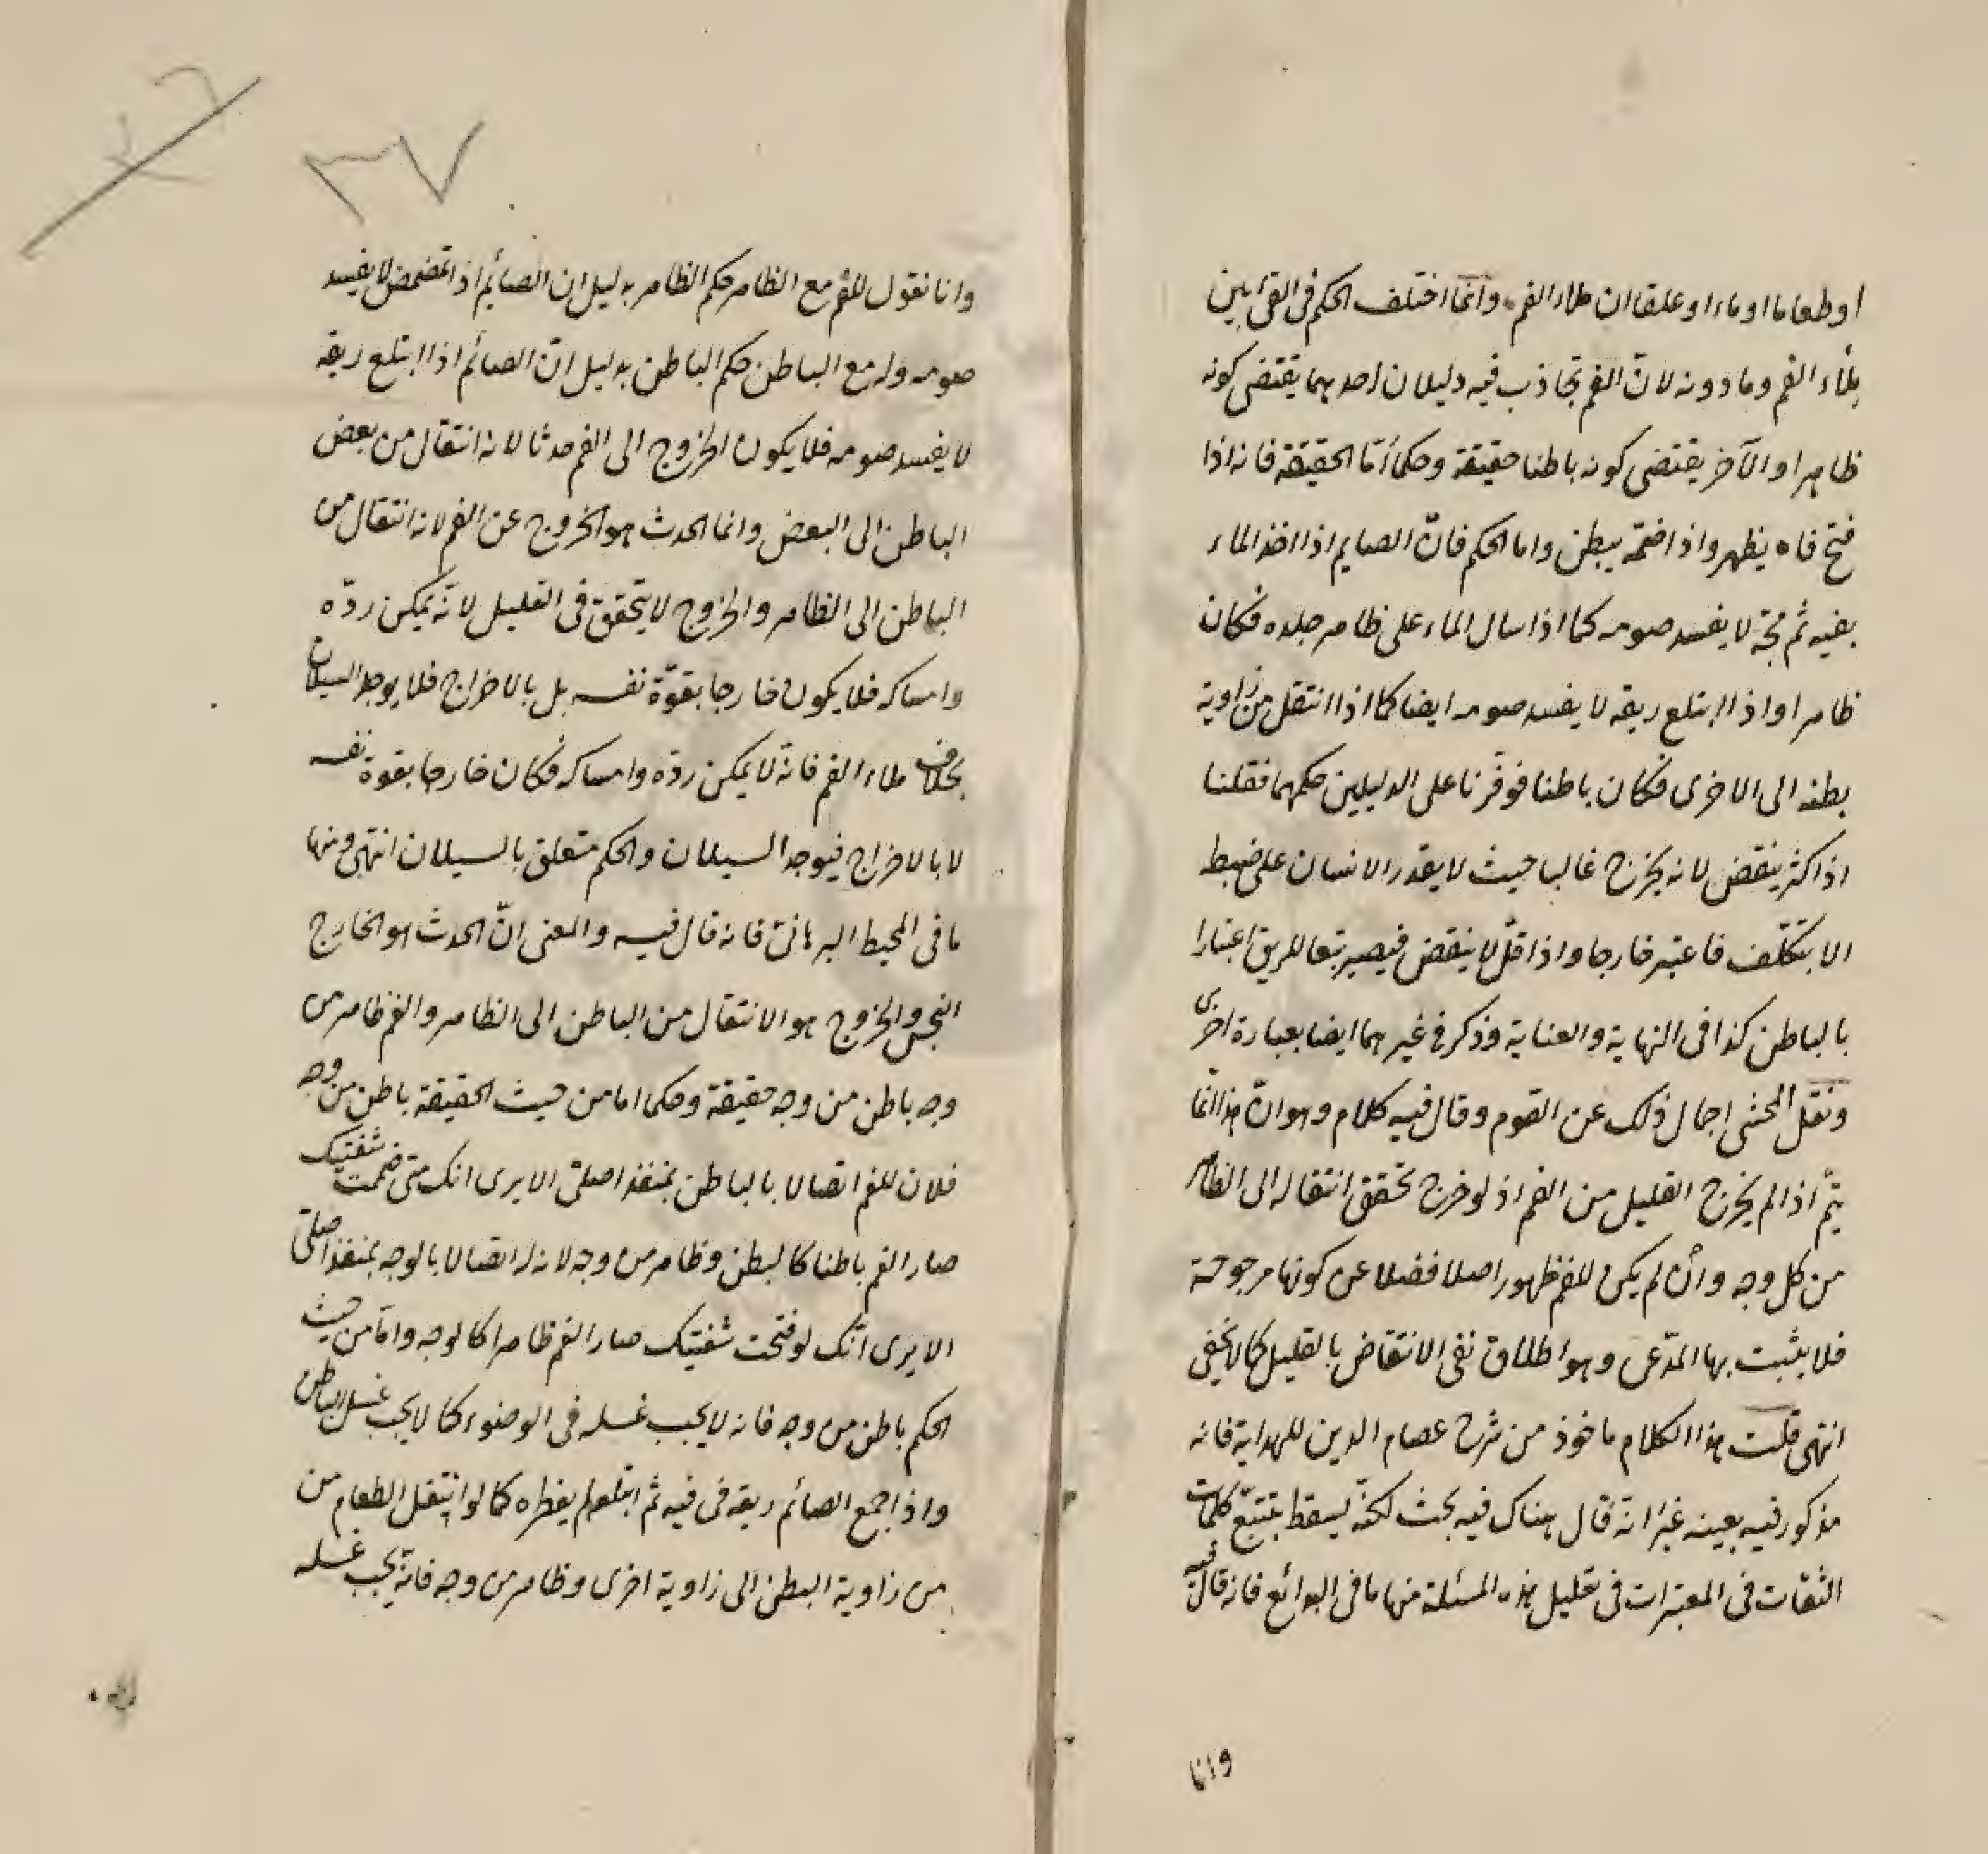 اوطعاما اوماء او علقا ان ملاء الفم وانما اختلف الحكم فى القئ بين
ملأء الفم وما دونه لانّ الفم تجاذب فيه دليلان احدهما يقتضى كونه
ظاهرا والآخر يقتضى كونه باطنا حقيقة وحكما أمّا الحقيقة فانه اذا
فتح فاه يظهر واذا ضمّه يبطن واما الحكم فانّ الصايم اذا اخذ الماء
بفيه ثم مجّه لا يفسد صومه كما اذا سال الماء على ظاهر جلده فكان
ظاهرا واذا ابتلع ريقه لا يفسد صومه ايضا كما اذا انتقل من زاوية
بطنه الى الاخرى فكان باطنا فوفّرنا على الدليلين حكمهما فقلنا
اذا كثر ينقض لانه يخرج غالبا حيث لا يقدر الانسان على ضبط
الا بتكلّف فاعتبر خارجا واذا قلّ لا ينقض فيصير تبعا للريق اعتبارا
بالباطن كذا فى النهاية والعناية وذكر فى غيرهما ايضا بعبارة اخرى
ونقل المحشى اجمال ذلك عن القوم وقال فيه كلام وهو انّ هذا انّما
يتمّ اذا لم يخرج القليل من الفم اذ لو خرج تحقق انتقاله الى الظاهر
من كل وجه وأن لم يكن للفم ظهور اصلا فضلا عن كونها مرجوحة
فلا يثبت بها المدّعى وهو اطلاق نفى الانتقاض بالقليل كما لا يخفى
انتهى قلت هذا الكلام ماخوذ من شرح عصام الدين للهداية فانه
مذكور فيه بعينه غير انه قال هناك فيه بحث لكنّه يسقط بتتبّع كلمات
الثقات فى المعتبرات فى تعليل هذه المسئلة منها ما فى البدائع فانه قال فيه
وانا
٣٧
وانا نقول للفم مع الظاهر حكم الظاهر بدليل ان الصائم اذا تمضمض لا يفسد
صومه وله مع الباطن حكم الباطن بدليل انّ الصائم اذا ابتلع ريقه
لا يفسد صومه فلا يكون الخروج الى الفم حدثا لانه انتقال من بعض
الباطن الى البعض وانما الحدث هو الخروج عن الفم لانه انتقال من
الباطن الى الظاهر والخروج لا يتحقق فى القليل لانّه يمكن ردّه
وامساكه فلا يكون خارجا بقوّة نفسه بل بالاخراج فلا يوجد السيلان
بخلاف ملاء الفم فانه لا يمكن ردّه وامساكه فكان خارجا بقوة نفسه
لا بالاخراج فيوجد السيلان والحكم متعلق بالسيلان انتهى ومنها
ما فى المحيط البرهانى فانه قال فيه والمعنى انّ الحدث هو الخارج
النجس والخروج هو الانتقال من الباطن الى الظاهر والفم ظاهر من
وجه باطن من وجه حقيقة وحكما اما من حيث الحقيقة باطن من وجه
فلان للفم اتصالا بالباطن بمنفذ اصلىّ الا يرى انك متى ضممت شفتيك
صار الفم باطنا كالبطن وظاهر من وجه لانه له اتصالا بالوجه بمنفذ اصلىّ
الا يرى انّك لو فتحت شفتيك صار الفم ظاهرا كالوجه وامّا من حيث
الحكم باطن من وجه فانه لا يجب غسله فى الوضوء كما لا يجب غسل الباطن
واذا جمع الصائم ريقه فى فيه ثم ابتلعه لم يفطره كما لو انتقل الطعام من
من زاوية البطن الى زاوية اخرى وظاهر من وجه فانه يجب غسله